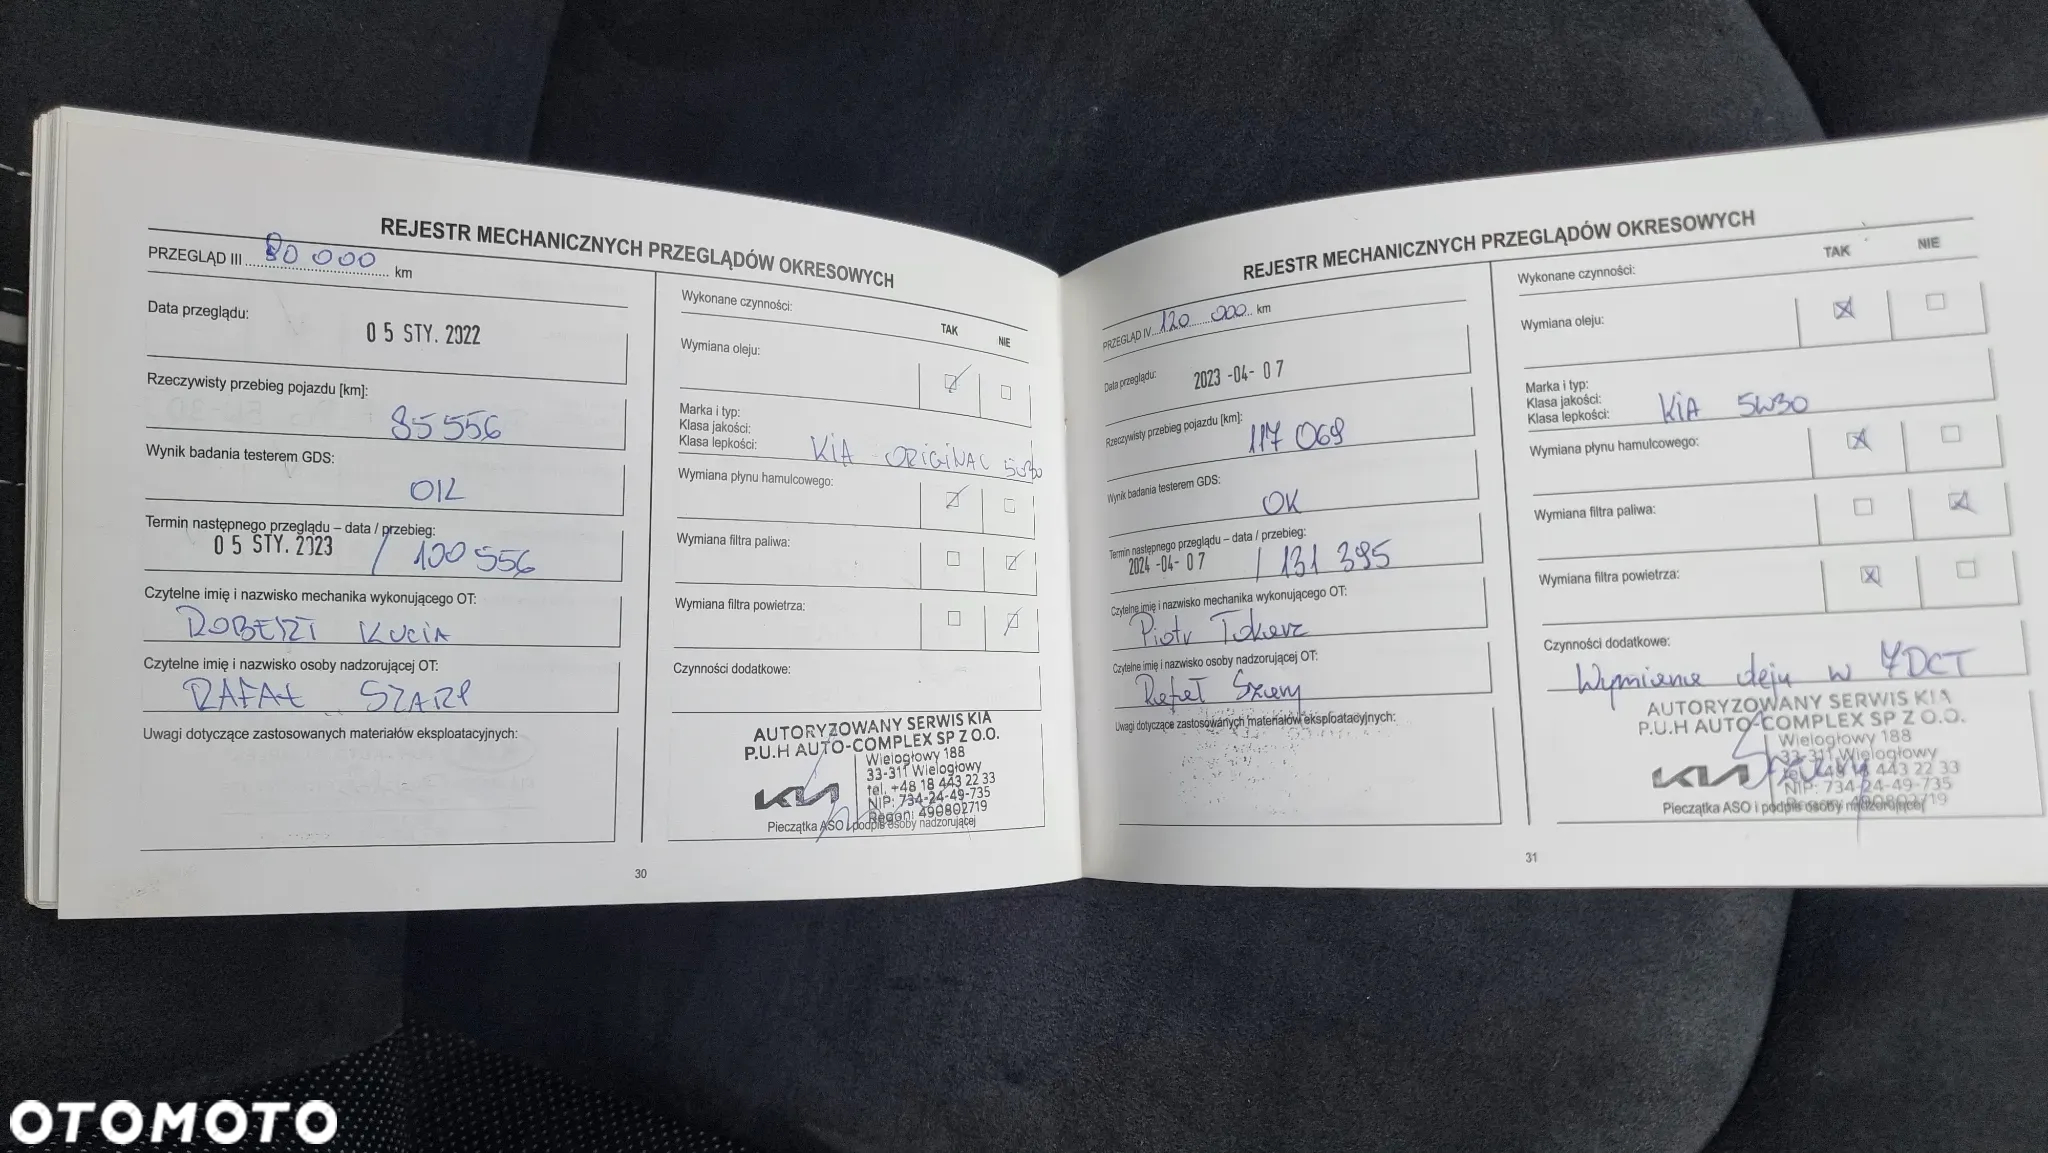 REJESTR MECHANICZNYCH PRZEGLĄDÓW OKRESOWYCH
PRZEGLĄD III 80 000 km
Data przeglądu:
05 STY. 2022
Rzeczywisty przebieg pojazdu [km]:
85 556
Wynik badania testerem GDS:
OIL
Termin następnego przeglądu – data / przebieg:
05 STY. 2023 / 100 556
Czytelne imię i nazwisko mechanika wykonującego OT:
ROBERT KUCIA
Czytelne imię i nazwisko osoby nadzorującej OT:
RAFAŁ SZARY
Uwagi dotyczące zastosowanych materiałów eksploatacyjnych:
Wykonane czynności:
TAK NIE
Wymiana oleju:
Marka i typ:
Klasa jakości:
Klasa lepkości: KIA ORIGINAL 5W30
Wymiana płynu hamulcowego:
Wymiana filtra paliwa:
Wymiana filtra powietrza:
Czynności dodatkowe:
AUTORYZOWANY SERWIS KIA
P.U.H AUTO-COMPLEX SP Z O.O.
Wielogłowy 188
33-311 Wielogłowy
tel. +48 18 443 22 33
NIP: 734-24-49-735
Regon: 490802719
KIA
Pieczątka ASO i podpis osoby nadzorującej
30
REJESTR MECHANICZNYCH PRZEGLĄDÓW OKRESOWYCH
PRZEGLĄD IV 120 000 km
Data przeglądu:
2023 -04- 07
Rzeczywisty przebieg pojazdu [km]:
117 069
Wynik badania testerem GDS:
OK
Termin następnego przeglądu – data / przebieg:
2024 -04- 07 / 131 395
Czytelne imię i nazwisko mechanika wykonującego OT:
Piotr
Czytelne imię i nazwisko osoby nadzorującej OT:
Rafał Szary
Uwagi dotyczące zastosowanych materiałów eksploatacyjnych:
Wykonane czynności:
TAK NIE
Wymiana oleju:
Marka i typ:
Klasa jakości:
Klasa lepkości: KIA 5W30
Wymiana płynu hamulcowego:
Wymiana filtra paliwa:
Wymiana filtra powietrza:
Czynności dodatkowe:
Wymiana oleju w 7DCT
AUTORYZOWANY SERWIS KIA
P.U.H AUTO-COMPLEX SP Z O.O.
Wielogłowy 188
33-311 Wielogłowy
tel. +48 18 443 22 33
NIP: 734-24-49-735
Regon: 490802719
KIA
Pieczątka ASO i podpis osoby nadzorującej
31
OTOMOTO